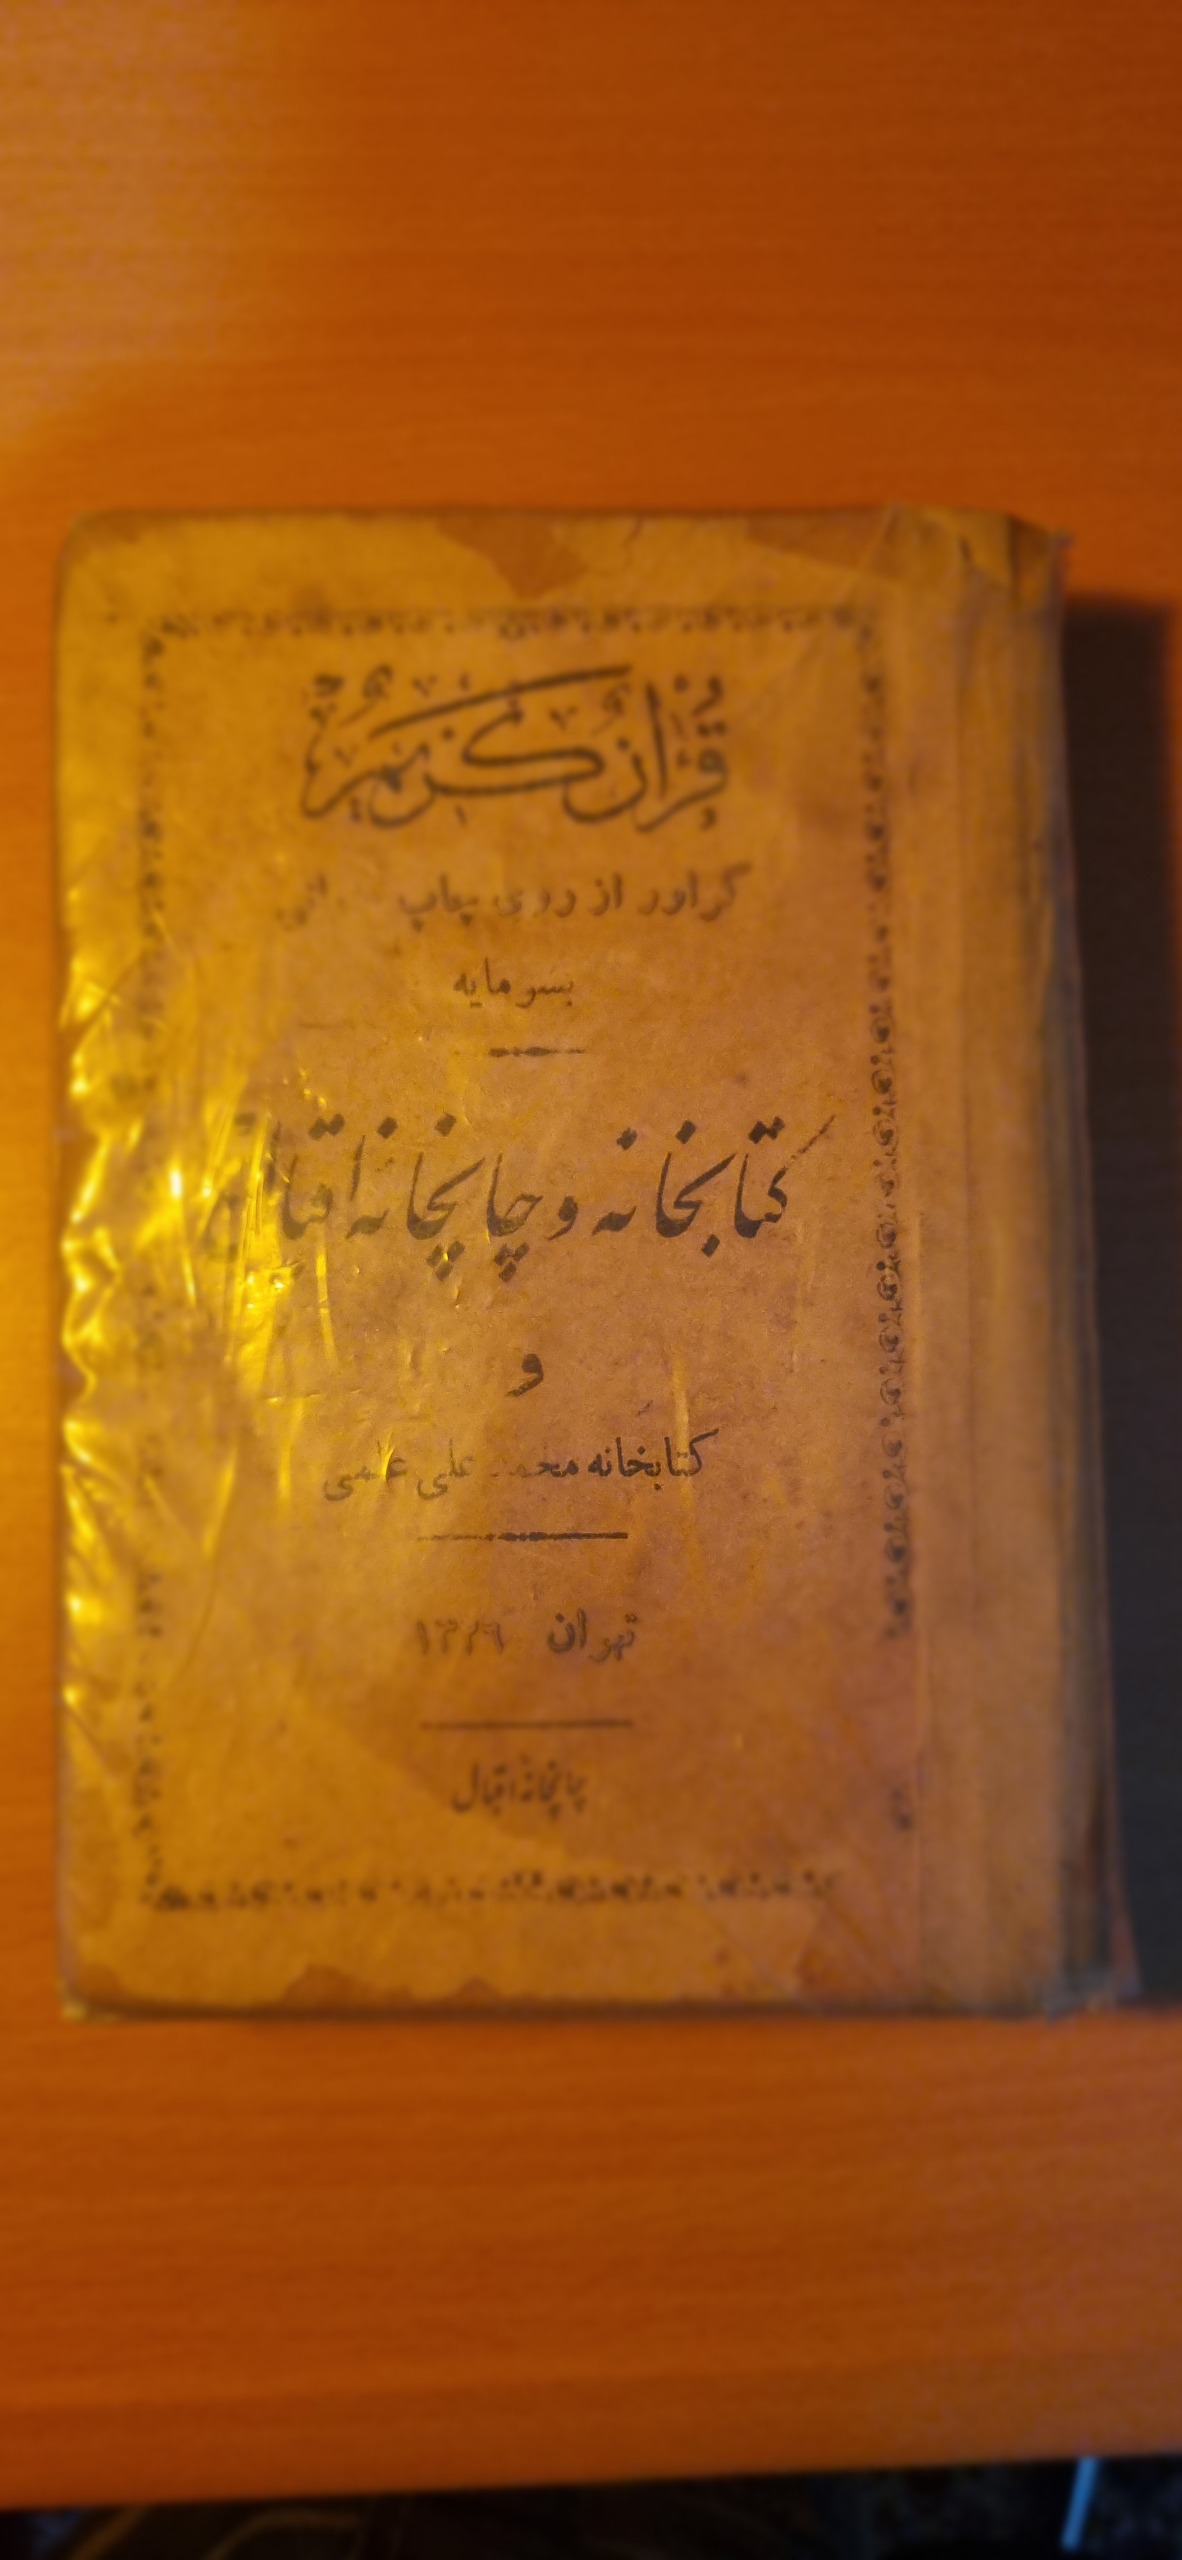 قرآن کریم
گراور از روی چاپ
بسرمایه
کتابخانه و چاپخانه اقبال
و
کتابخانه محمد علی علمی
تهران
چاپخانه اقبال